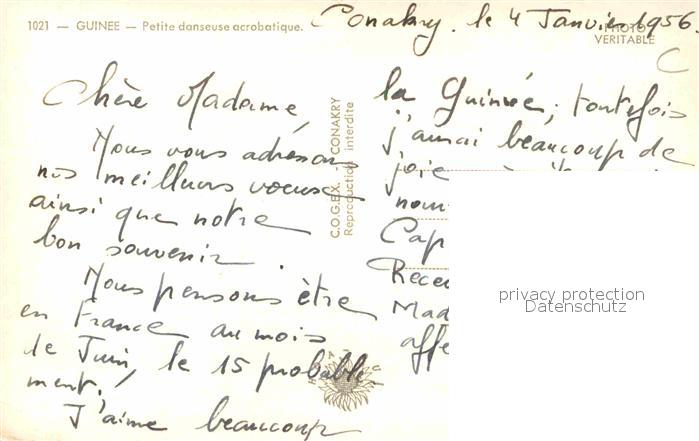 1021 — GUINEE — Petite danseuse acrobatique.
Conakry. le 4 Janvier 1956.
PHOTO VERITABLE
C
Chère Madame,
Nous vous adressons
nos meilleurs voeux
ainsi que notre
bon souvenir.
Nous pensons être
en France au mois
de Juin, le 15 probable
ment.
J'aime beaucoup
C.O.G.EX. - CONAKRY
Reproduction interdite
la Guinée, toutefois
j'aurai beaucoup de
joie
Cap
Rece
Mad
affe
privacy protection
Datenschutz